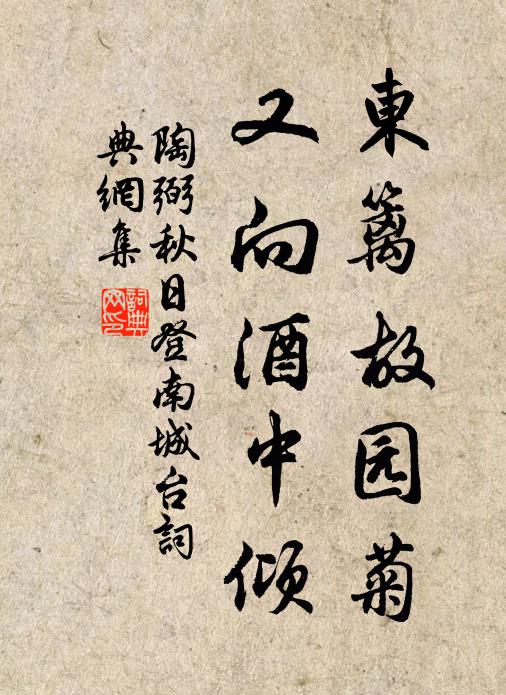 東籬故园菊
又向酒中倾
陶弼秋日登南城台詞
典網集
詞典
网印